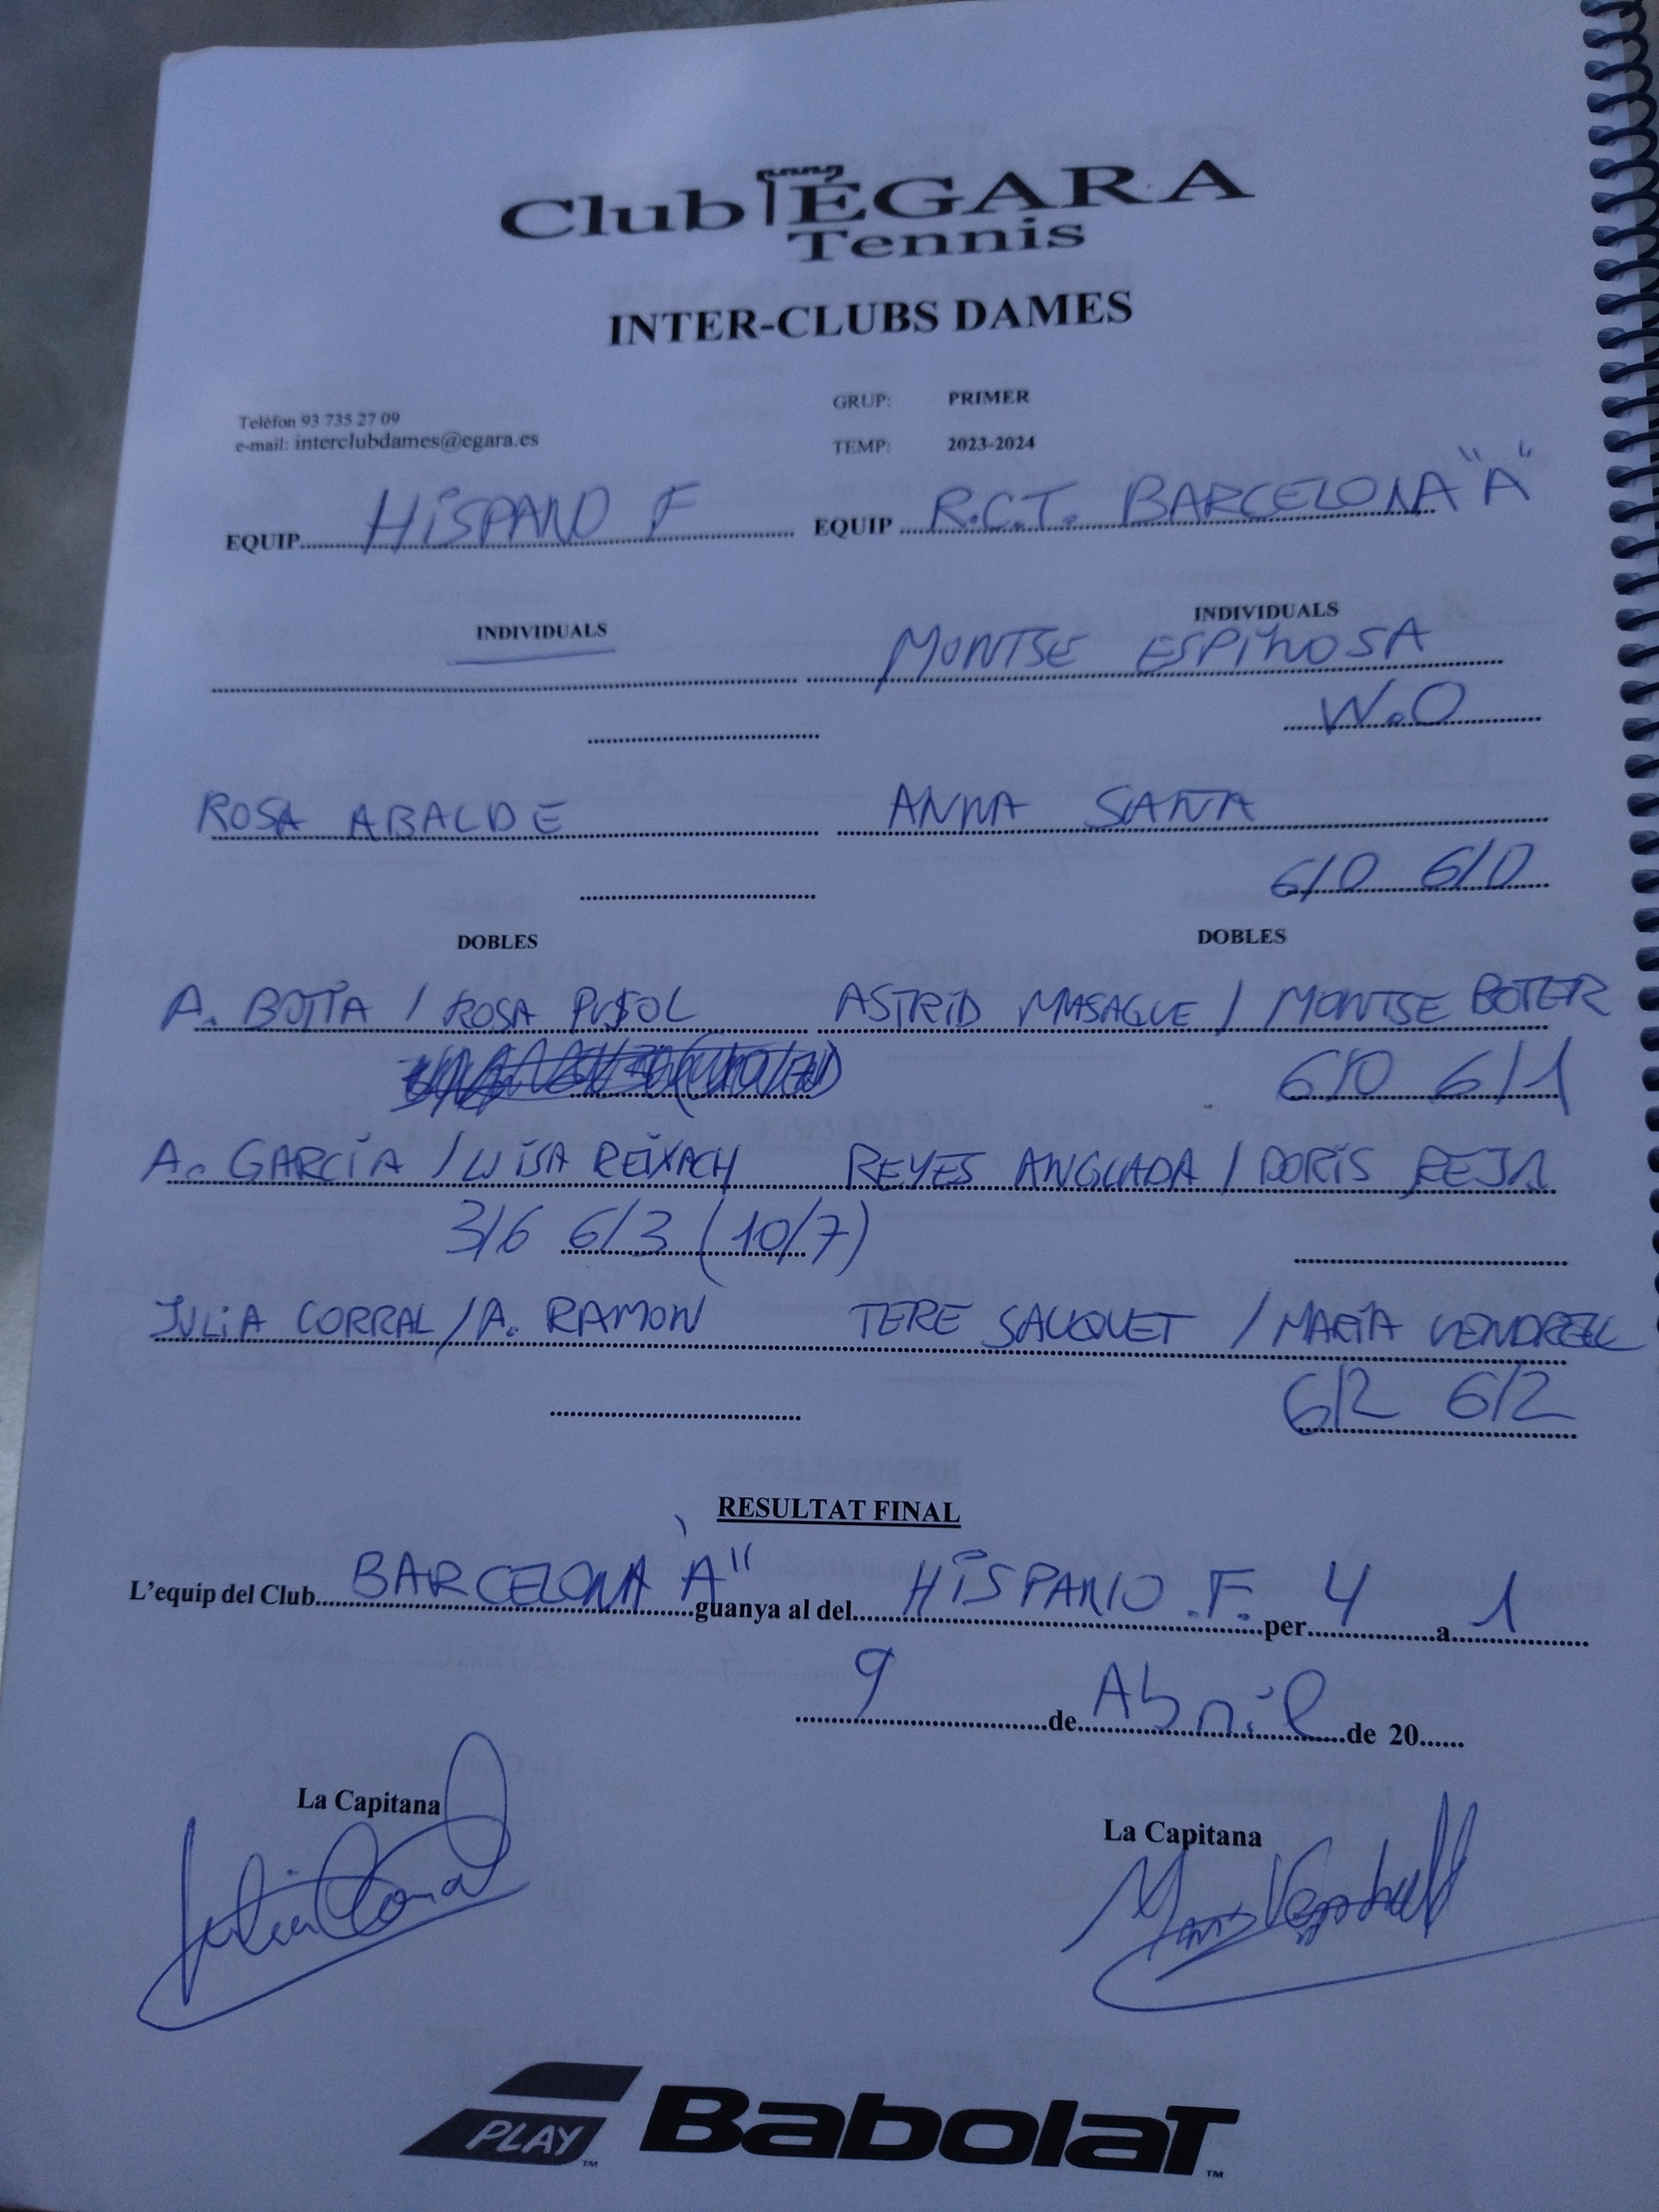 Club ÈGARA
Tennis
INTER-CLUBS DAMES
Telèfon 93 735 27 09
e-mail: interclubdames@egara.es
GRUP: PRIMER
TEMP: 2023-2024
EQUIP HISPANO F EQUIP R.C.T. BARCELONA "A"
INDIVIDUALS INDIVIDUALS
MONTSE ESPINOSA
W.O
ROSA ABALDE ANNA SAÑA
6/0 6/0
DOBLES DOBLES
A. BOTTA / ROSA PUJOL ASTRID MASAGUE / MONTSE BOTER
6/0 6/1
A. GARCÍA / LUISA REIXACH REYES ANGLADA / DORIS
3/6 6/3 (10/7)
JULIA CORRAL / A. RAMON TERE SAUQUET / MARÍA VENDRELL
6/2 6/2
RESULTAT FINAL
L'equip del Club BARCELONA "A" guanya al del HISPANO F. per 4 a 1
9 de Abril de 20
La Capitana La Capitana
PLAY Babolat